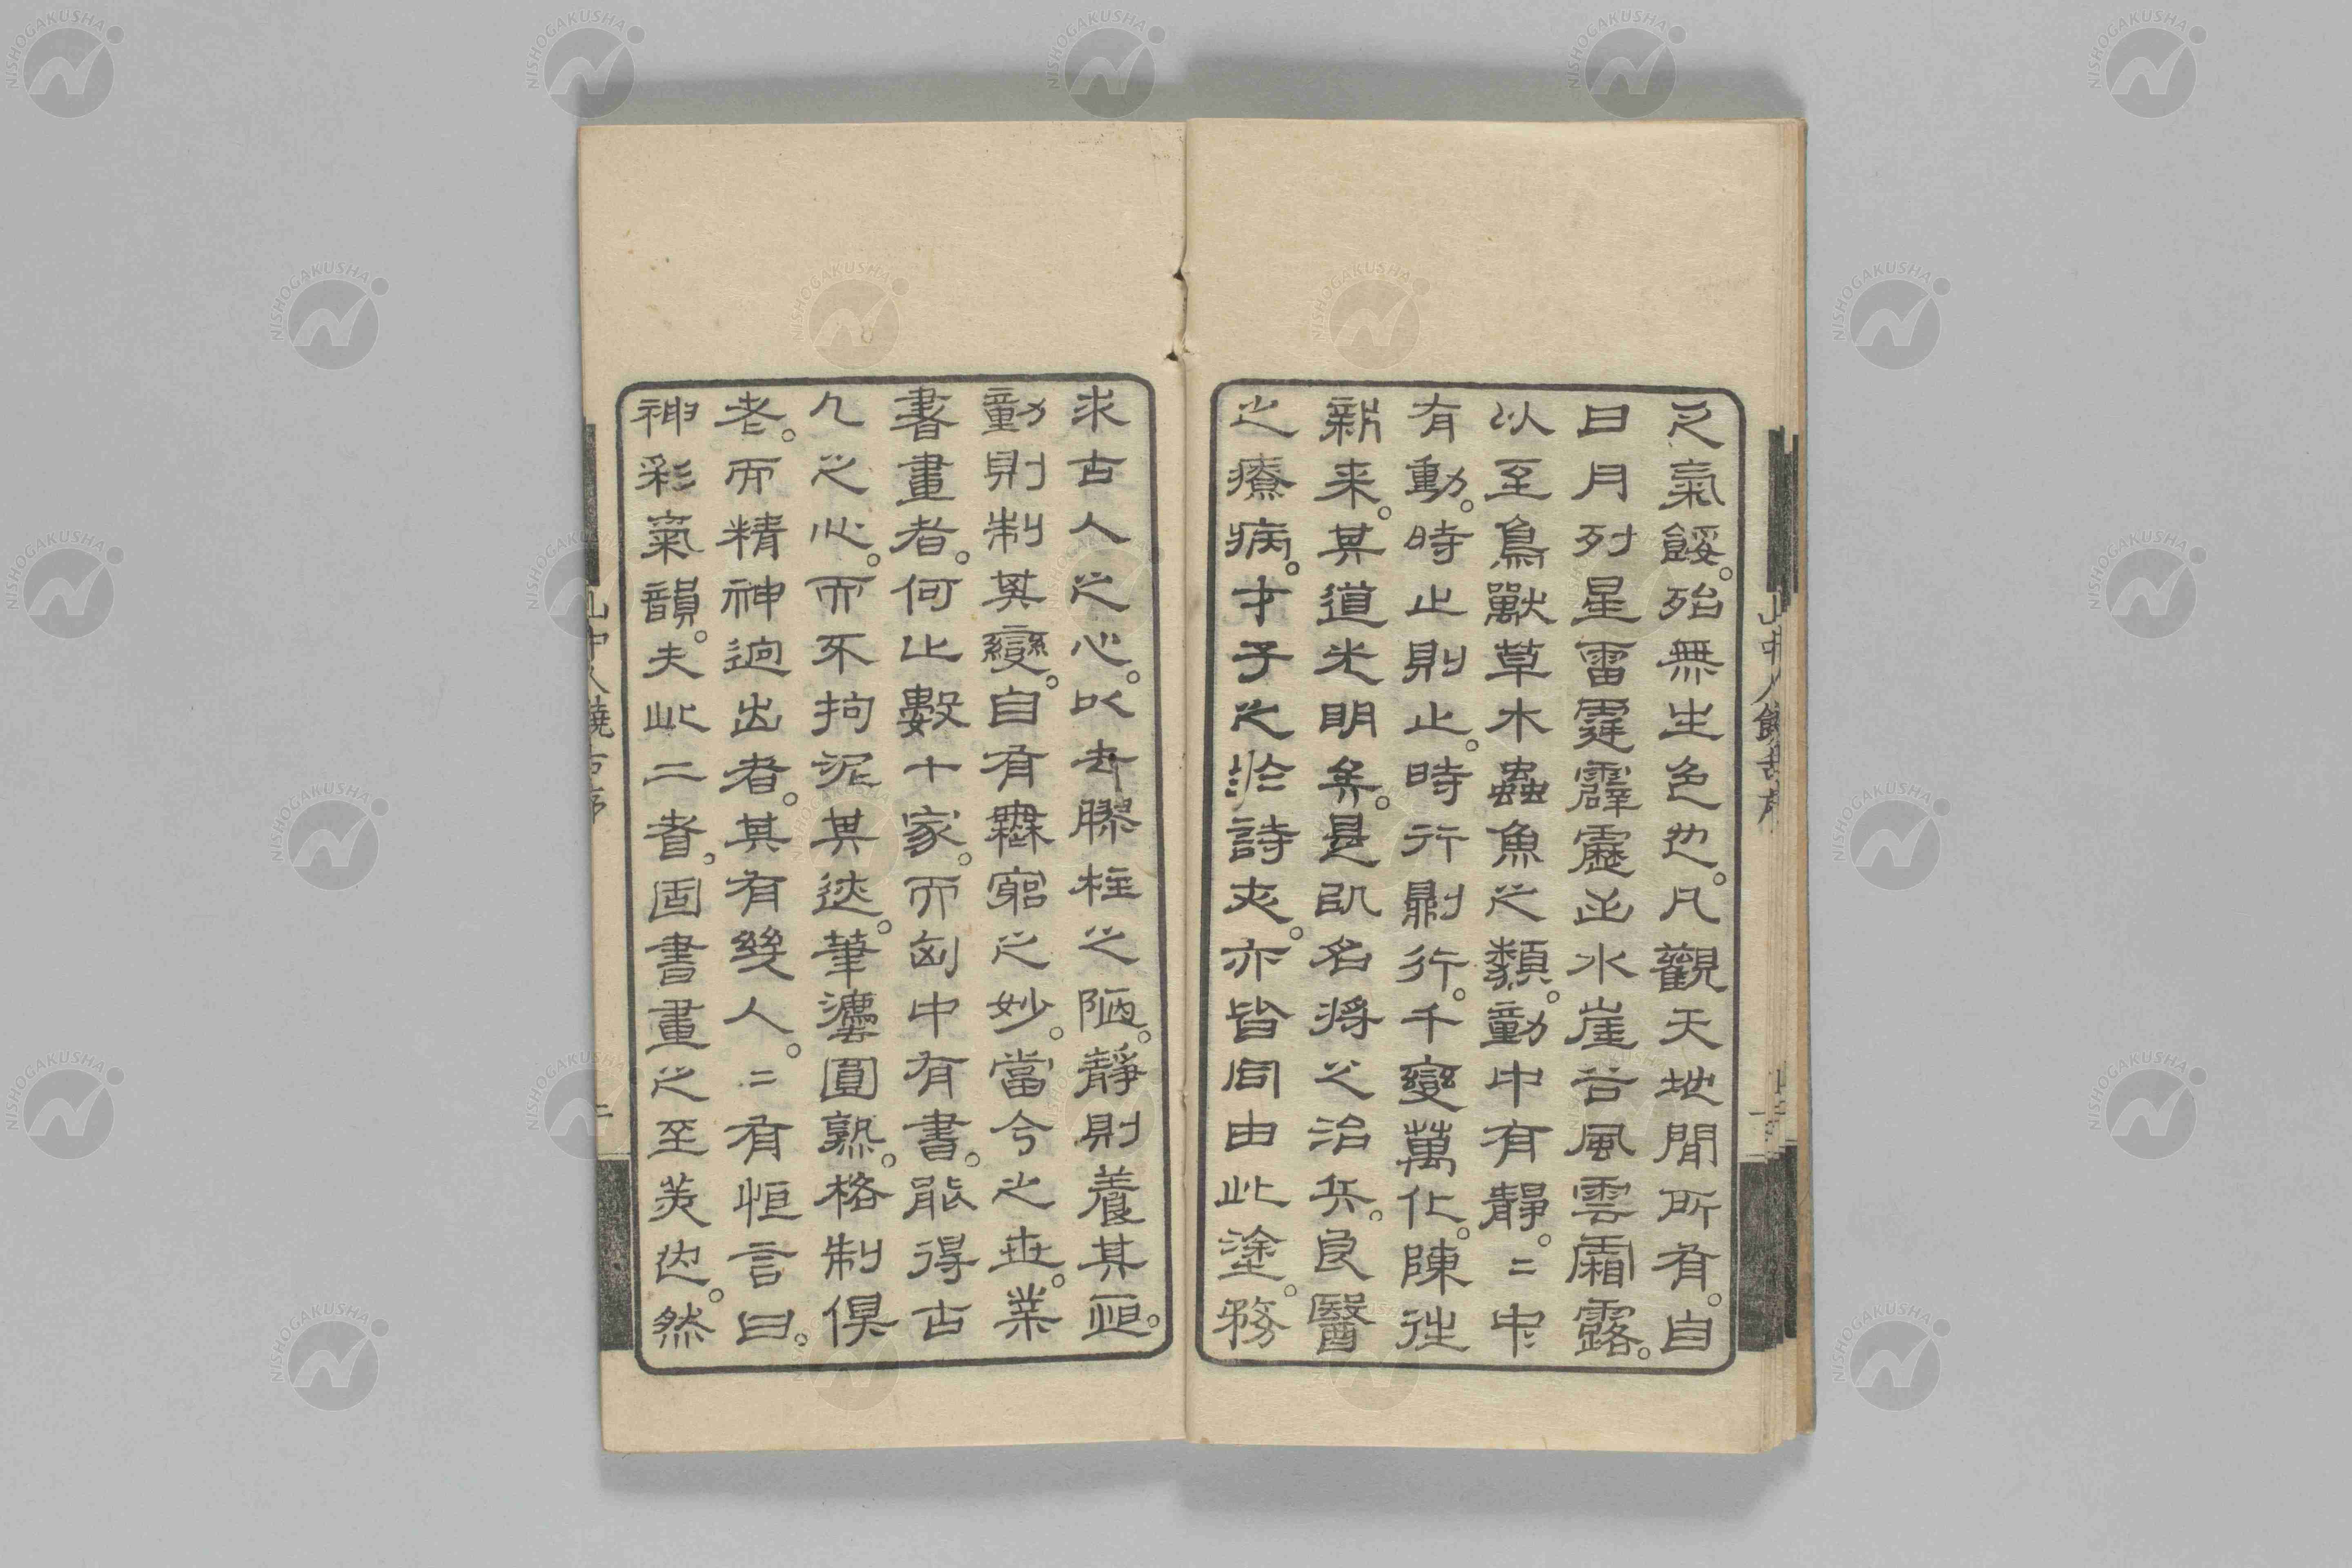 之氣餒。殆無生色也。凡觀天地間所有。自
日月列星雷霆霹靂山水崖谷風雲霜露。
以至鳥獸草木蟲魚之類。動中有靜。二中
有動。時止則止。時行則行。千變萬化。陳往
新来。其道光明矣。是以名將之治兵。良醫
之療病。才子之於詩文。亦皆同由此塗。務
求古人之心。以去膠柱之陋。靜則養其恒。
動則制其變。自有無窮之妙。當今之世。業
書畫者。何止數十家。而匈中有書。能得古
人之心。而不拘泥其迹。筆灋圓熟。格制俱
老。而精神迥出者。其有幾人。二有恒言曰。
神彩氣韻。夫此二者。固書畫之至美也。然
山中人饒舌序
二
NISHOGAKUSHA